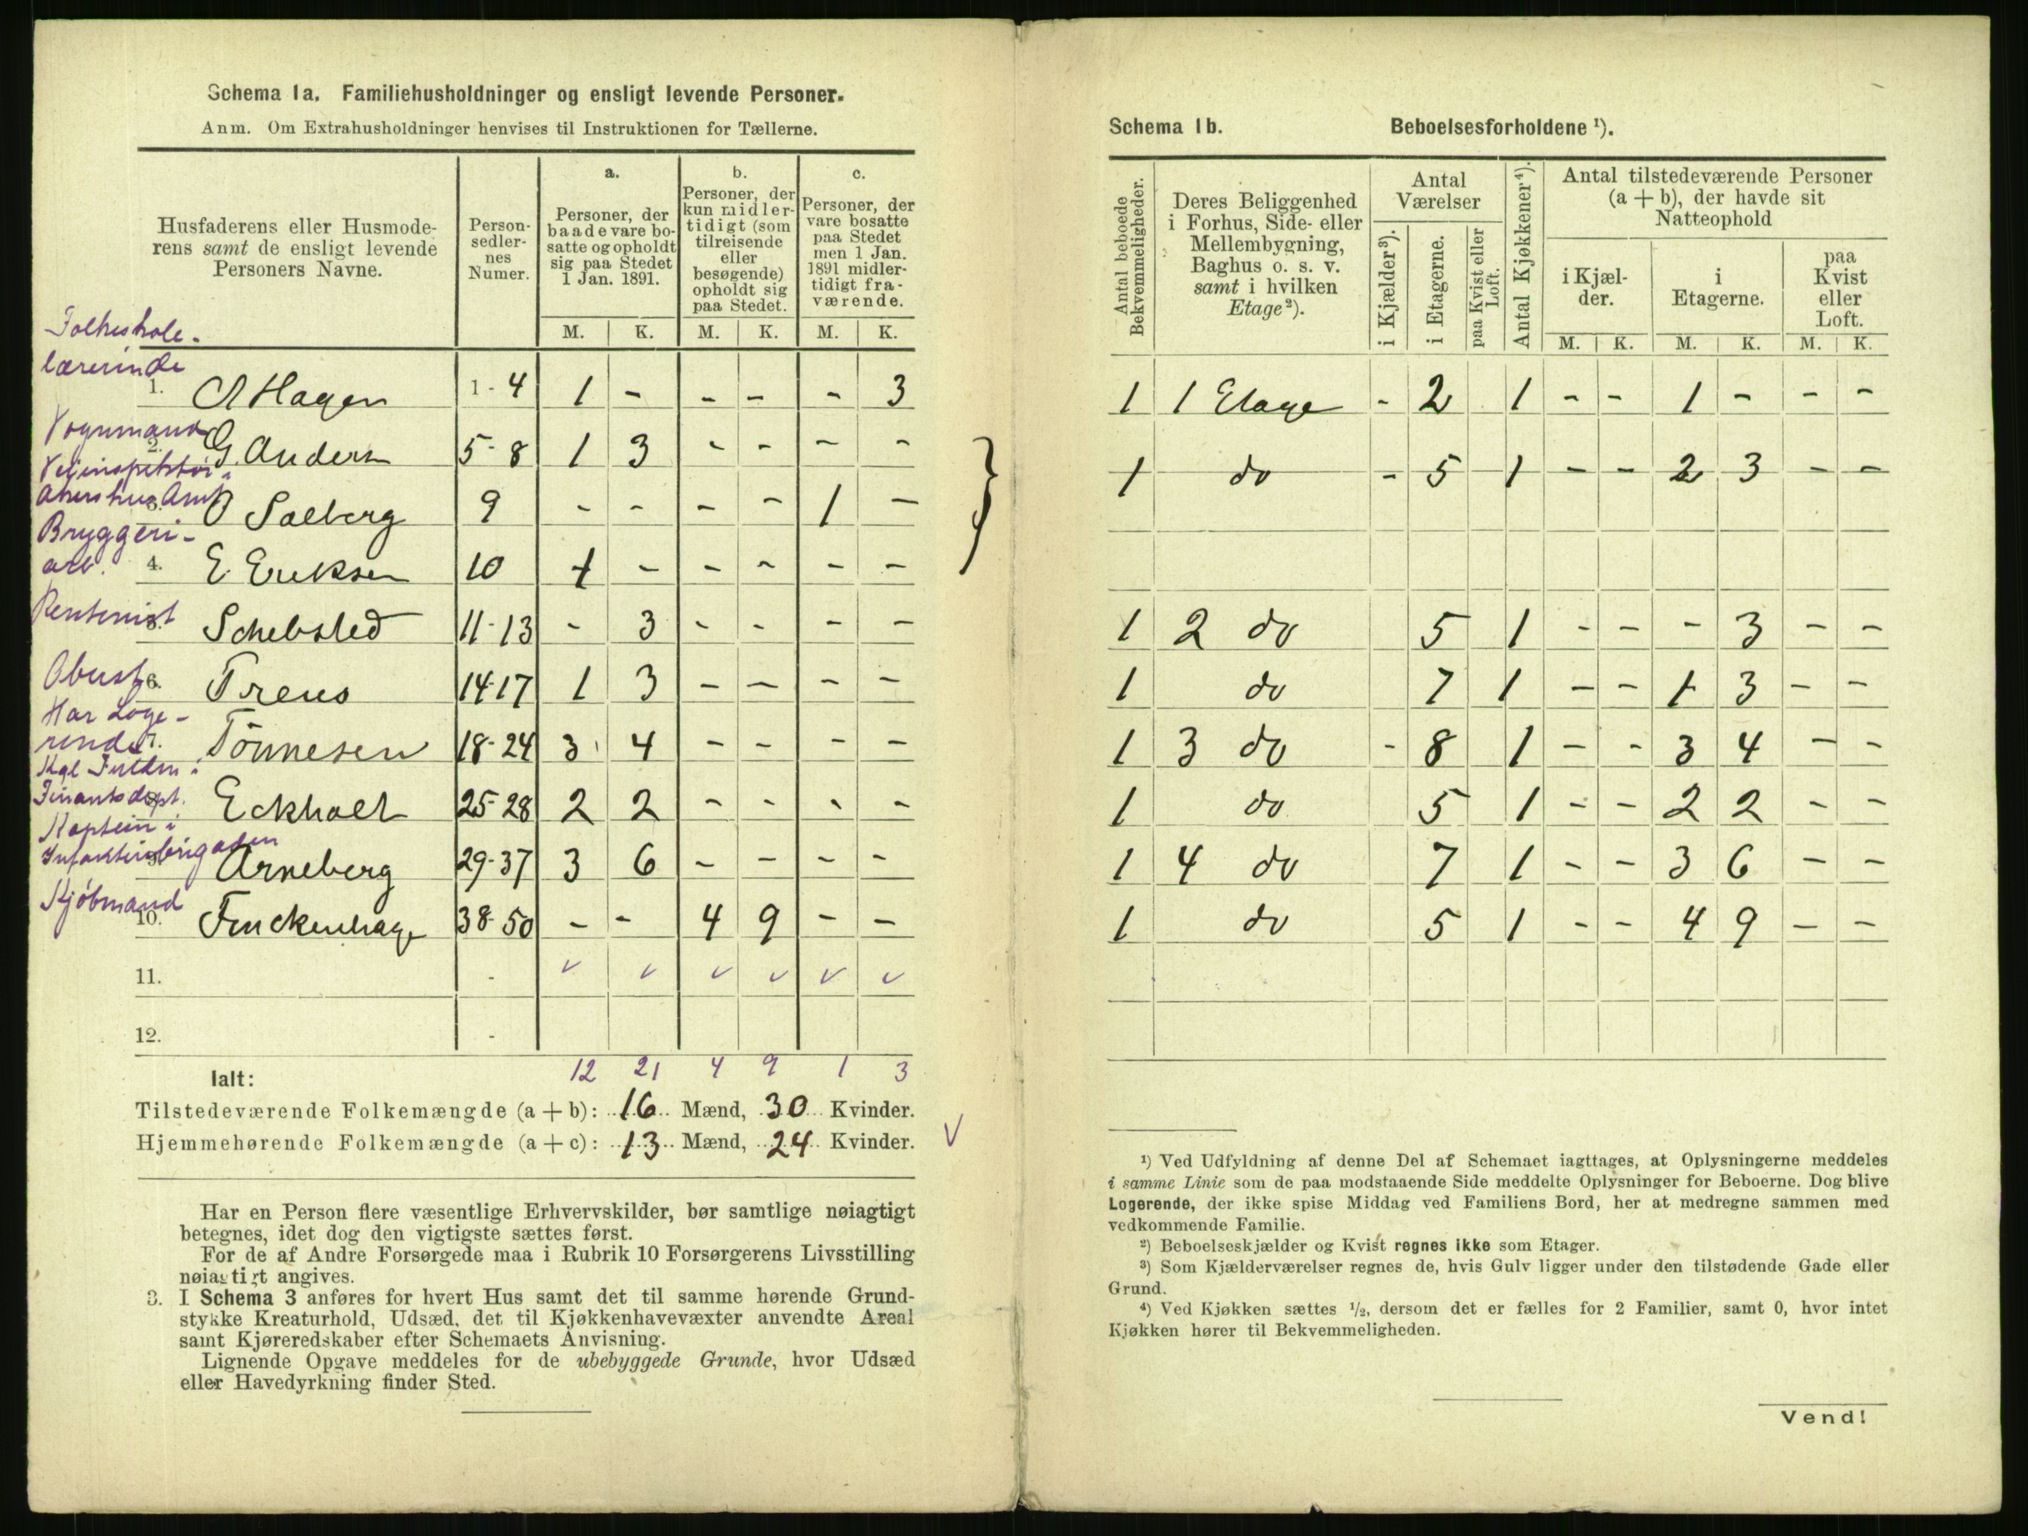 Schema 1a. Familiehusholdninger og ensligt levende Personer.
Anm. Om Extrahusholdninger henvises til Instruktionen for Tællerne.
Husfaderens eller Husmode-
rens samt de ensligt levende
Personers Navne.
Person-
sedler-
nes
Numer.
a.
Personer, der
baade vare bo-
satte og opholdt
sig paa Stedet
1 Jan. 1891.
b.
Personer, der
kun midler-
tidigt (som
tilreisende
eller
besøgende)
opholdt sig
paa Stedet.
c.
Personer, der
vare bosatte
paa Stedet
men 1 Jan.
1891 midler-
tidigt fra-
værende.
M. K. M. K. M. K.
Folkeskole-
lærerinde
1. A Hagen 1-4 1 - - - - 3
Vognmand
2. G. Anders 5-8 1 3 - - - -
Veiinspektør i
Akershus Amt
3. O Solberg 9 - - - - 1 -
Bryggeri-
arb.
4. E. Eriksen 10 1 - - - - -
Rentenist
5. Schebsted 11-13 - 3 - - - -
6. Trens 14-17 1 3 - - - -
Har Loge-
rende
7. Tönnesen 18-24 3 4 - - - -
Kgl. Fuldm. i
Finantsdept.
8. Eckholt 25-28 2 2 - - - -
Kaptein i
Infanteribrigaden
9. Arneberg 29-37 3 6 - - - -
Kjøbmand
10. Finckenhage 38-50 - - 4 9 - -
11. - v v v v v v
12. -
Ialt: 12 21 4 9 1 3
Tilstedeværende Folkemængde (a + b): 16 Mænd, 30 Kvinder.
Hjemmehørende Folkemængde (a + c): 13 Mænd, 24 Kvinder. V
Har en Person flere væsentlige Erhvervskilder, bør samtlige nøiagtigt
betegnes, idet dog den vigtigste sættes først.
For de af Andre Forsørgede maa i Rubrik 10 Forsørgerens Livsstilling
nøiagtigt angives.
3. I Schema 3 anføres for hvert Hus samt det til samme hørende Grund-
stykke Kreaturhold, Udsæd, det til Kjøkkenhavevæxter anvendte Areal
samt Kjøreredskaber efter Schemaets Anvisning.
Lignende Opgave meddeles for de ubebyggede Grunde, hvor Udsæd
eller Havedyrkning finder Sted.
Schema 1b. Beboelsesforholdene ¹).
Antal beboede
Bekvemmeligheder.
Deres Beliggenhed
i Forhus, Side- eller
Mellembygning,
Baghus o. s. v.
samt i hvilken
Etage²).
Antal
Værelser
i Kjælder³).
i Etagerne.
paa Kvist eller
Loft.
Antal Kjøkkener⁴).
Antal tilstedeværende Personer
(a + b), der havde sit
Natteophold
i Kjæl-
der.
i
Etagerne.
paa
Kvist
eller
Loft.
M. K. M. K. M. K.
1 1 Etage - 2 1 - - 1 - - -
1 do - 5 - 1 - - 2 3 - -
1 2 do 5 1 - - - 3 - -
1 do 7 1 - - 1 3 - -
1 3 do - 8 1 - - 3 4 - -
1 do 5 1 - - 2 2 - -
1 4 do 7 1 - - 3 6 - -
1 do 5 1 - - 4 9 - -
¹) Ved Udfyldning af denne Del af Schemaet iagttages, at Oplysningerne meddeles
i samme Linie som de paa modstaaende Side meddelte Oplysninger for Beboerne. Dog blive
Logerende, der ikke spise Middag ved Familiens Bord, her at medregne sammen med
vedkommende Familie.
²) Beboelseskjælder og Kvist regnes ikke som Etager.
³) Som Kjælderværelser regnes de, hvis Gulv ligger under den tilstødende Gade eller
Grund.
⁴) Ved Kjøkken sættes ¹/₂, dersom det er fælles for 2 Familier, samt 0, hvor intet
Kjøkken hører til Bekvemmeligheden.
Vend!